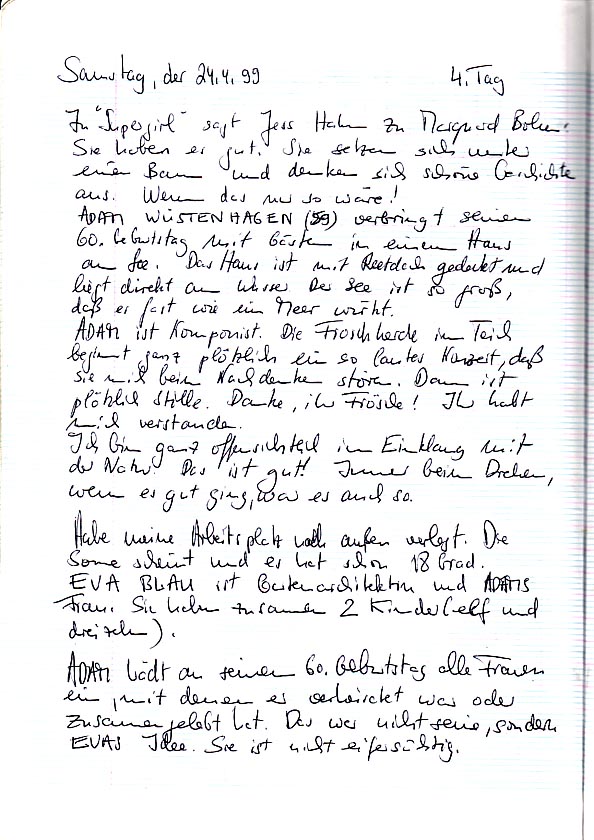 Samstag, der 24.4.99 4. Tag
In "Supergirl" sagt Jess Hahn zu Marquard Bohm:
Sie haben es gut. Sie setzen sich unter
einen Baum und denken sich schöne Geschichten
aus. Wenn das nur so wäre!
ADAM WÜSTENHAGEN (59) verbringt seinen
60. Geburtstag mit Gästen in einem Haus
am See. Das Haus ist mit Reetdach gedeckt und
liegt direkt am Wasser. Der See ist so groß,
daß er fast wie ein Meer wirkt.
ADAM ist Komponist. Die Froschherde im Teich
beginnt ganz plötzlich ein so lautes Konzert, daß
sie mich beim Nachdenken stören. Dann ist
plötzlich Stille. Danke, ihr Frösche! Ihr habt
mich verstanden.
Ich bin ganz offensichtlich im Einklang mit
der Natur. Das ist gut! Immer beim Drehen,
wenn es gut ging, war es auch so.
Habe meinen Arbeitsplatz nach außen verlegt. Die
Sonne scheint und es hat schon 18 Grad.
EVA BLAU ist Gartenarchitektin und ADAMS
Frau. Sie haben zusammen 2 Kinder (elf und
dreizehn).
ADAM lädt an seinem 60. Geburtstag alle Frauen
ein, mit denen er verheiratet war oder
zusammengelebt hat. Das war nicht seine, sondern
EVAS Idee. Sie ist nicht eifersüchtig.